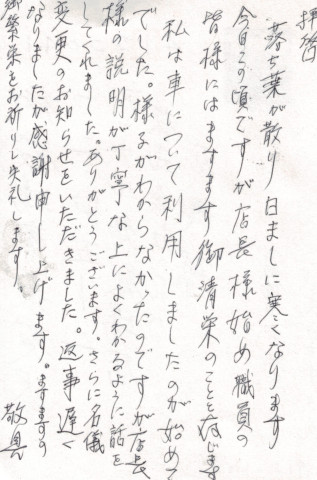 拝啓
落ち葉が散り日ましに寒くなります
今日この頃ですが店長様始め職員の
皆様にはますます御清栄のことと存じます
私は車について利用しましたのが始めて
でした。様子がわからなかったのですが店長
様の説明が丁寧な上によくわかるように話を
してくれました。ありがとうございます。さらに名儀
変更のお知らせをいただきました。返事遅く
なりましたが感謝申し上げます。ますますの
御繁栄をお祈りし失礼します。
敬具